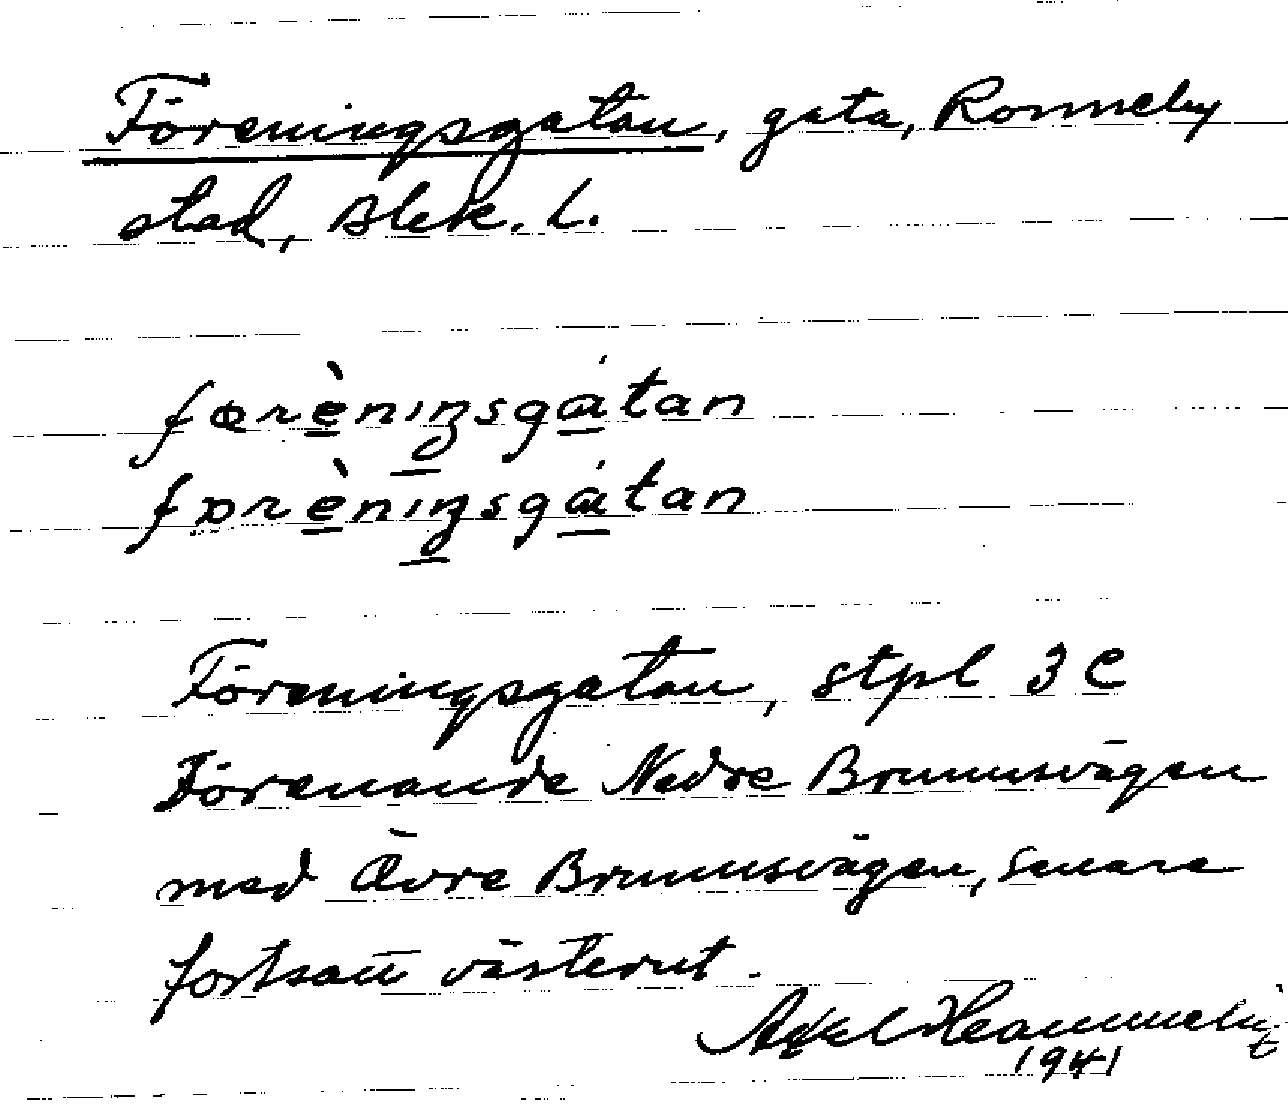 Föreningsgatan, gata, Ronneby
stad, Blek. l.
Föreningsgatan, stpl 3 C
Förenande Nedre Brunnsvägen
med Övre Brunnsvägen, senare
fortsatt västerut.
Axel
1941